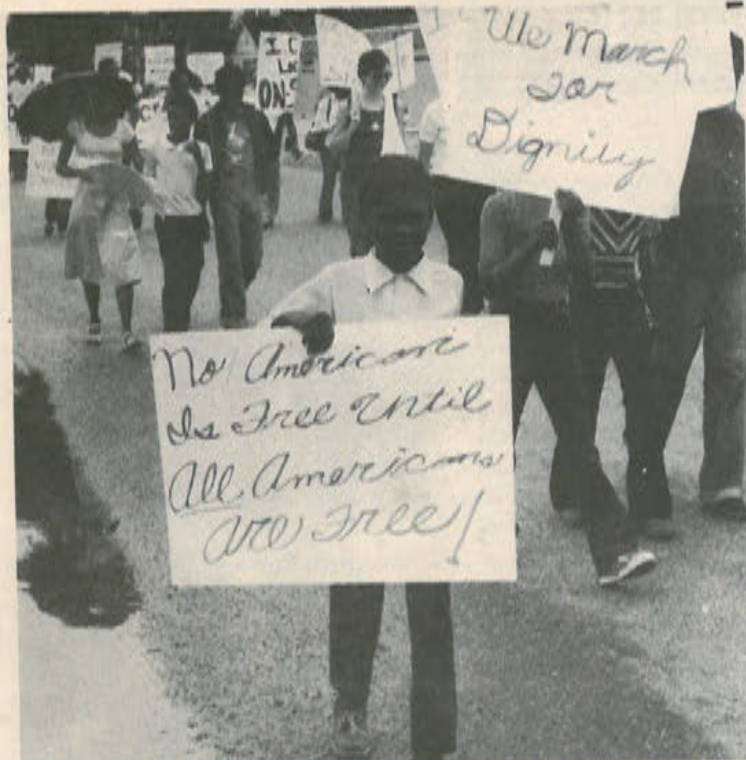 We March
For
Dignity
No American
Is Free Until
All Americans
Are Free!
I
ONS